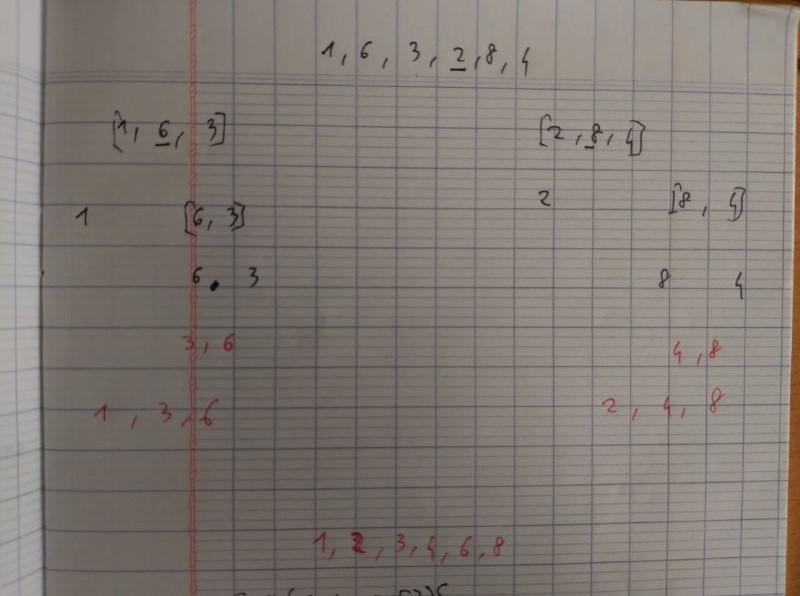 1, 6, 3, 2, 8, 4
[1, 6, 3] [2, 8, 4]
1 [6, 3] 2 [8, 4]
6 . 3 8 4
3, 6 4, 8
1, 3, 6 2, 4, 8
1, 2, 3, 4, 6, 8